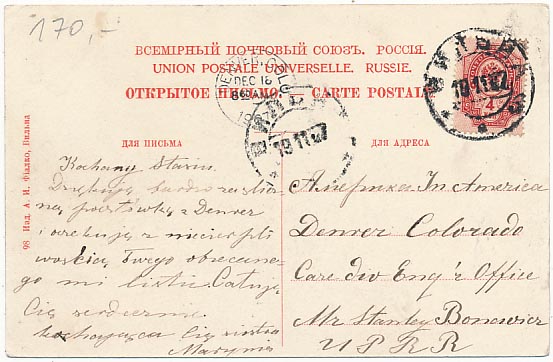 170,-
ВСЕМІРНЫЙ ПОЧТОВЫЙ СОЮЗЪ. РОССІЯ.
UNION POSTALE UNIVERSELLE. RUSSIE.
ОТКРЫТОЕ ПИСЬМО — CARTE POSTALE
DENVER, COLO.
DEC 18
8 30 AM
ВИЛЬНА
19 11 07
ВИЛЬНА
19 11 07
ДЛЯ ПИСЬМА
ДЛЯ АДРЕСА
98 Изд. А. И. Фіалко, Вильна
Kochany Stasiu.
Dziękuję bardzo za
pocztówkę z Denver
i oczekuję z niecierpli
wością Twego obiecane
go mi listu. Całuję
Cię serdecznie
kochająca Cię siostra
Marynia
Америка In America
Denver Colorado
Care div Eng'r Office
Mr Stanley Bonewicz
U P R R